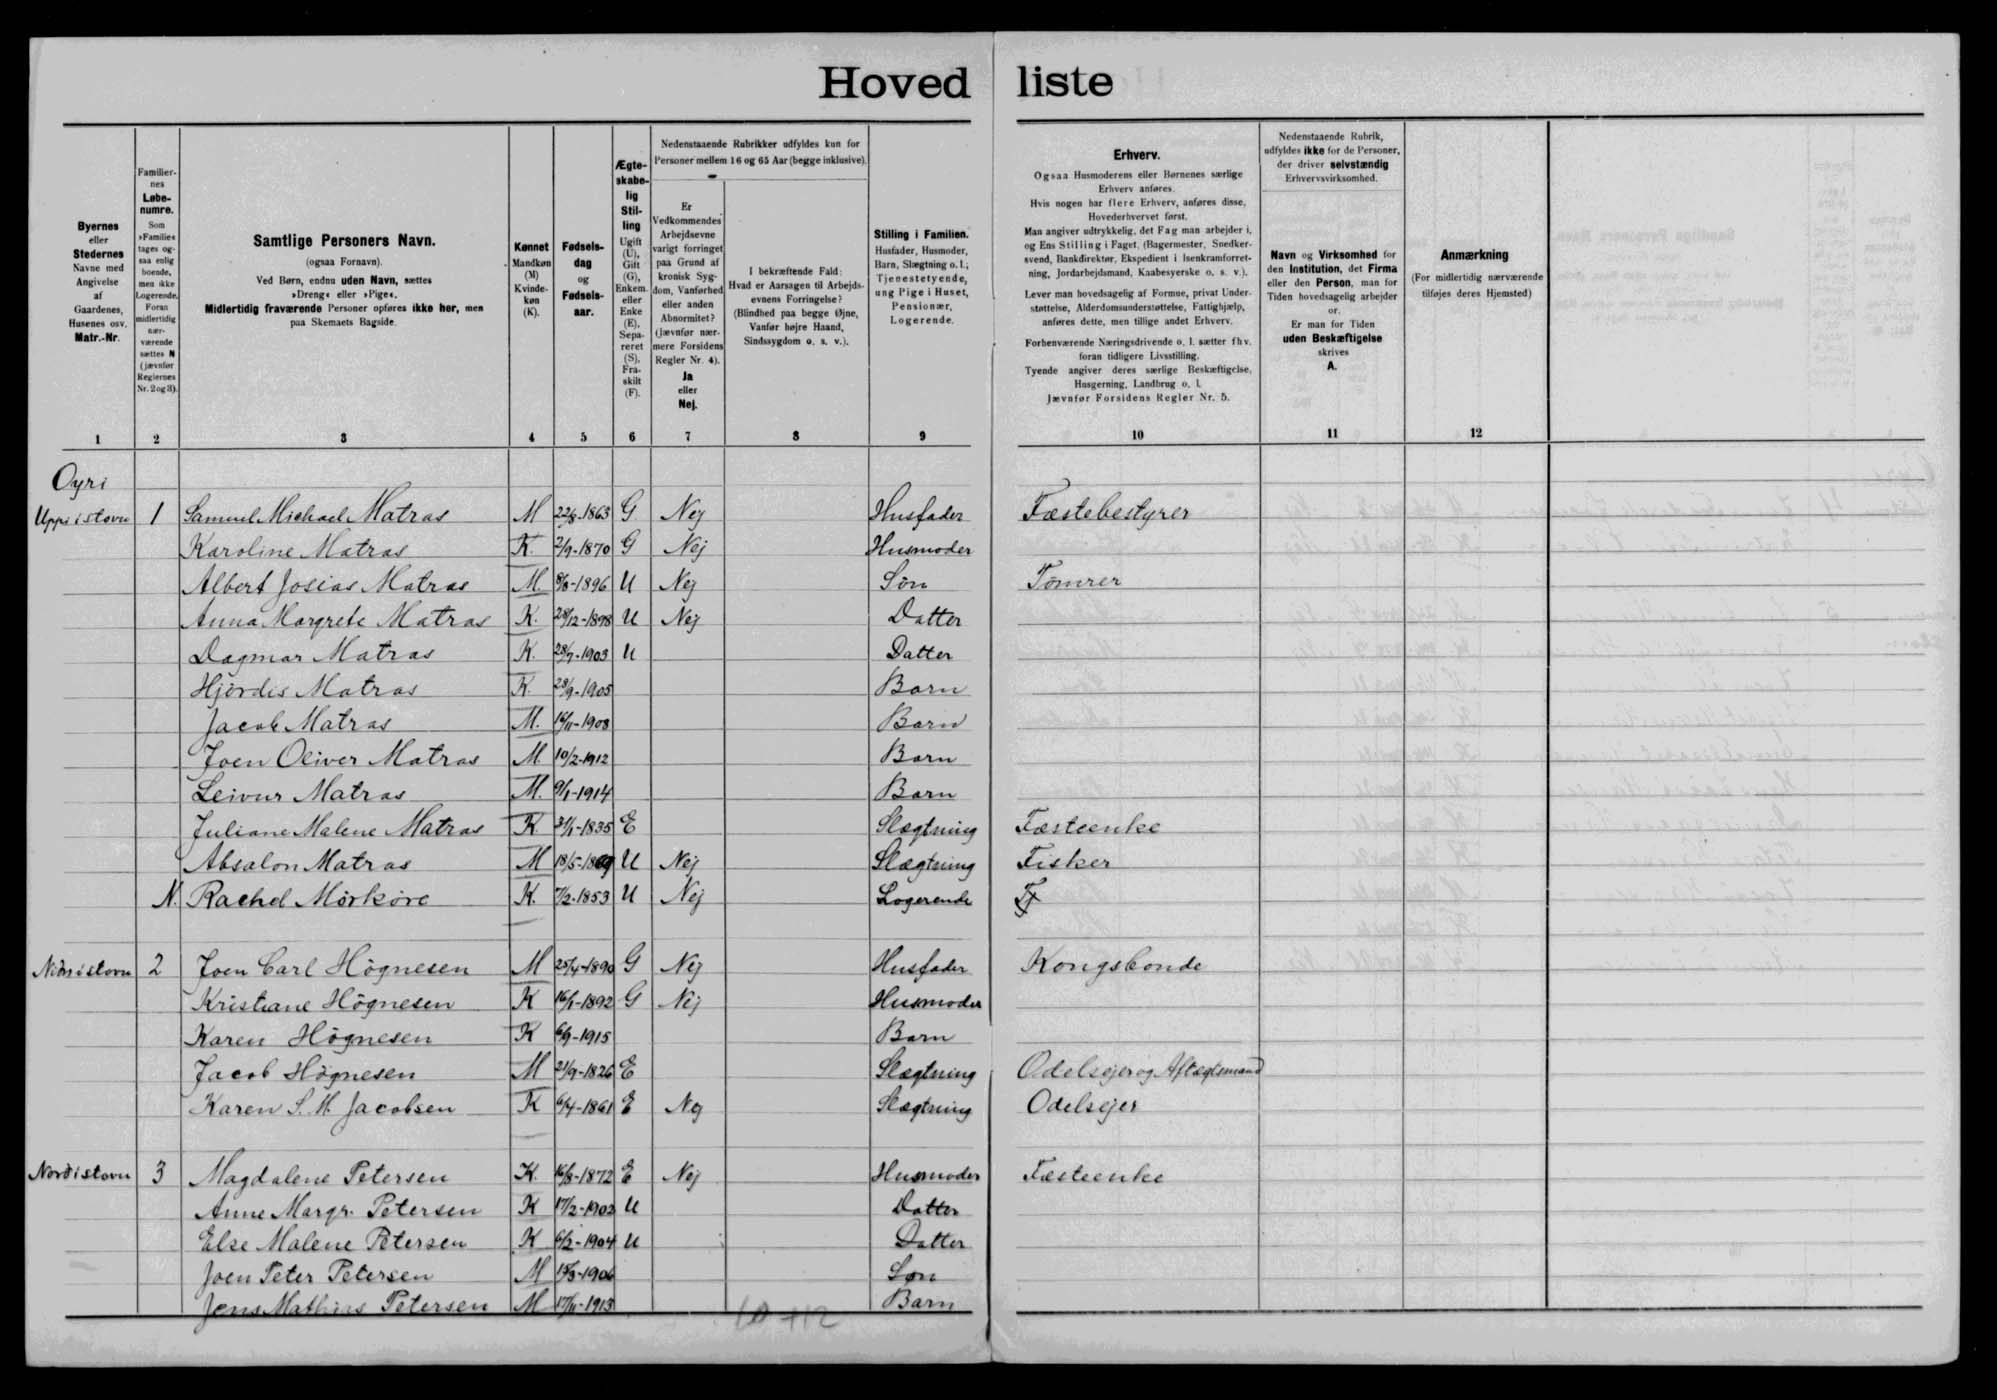 Hoved liste
Byernes
eller
Stedernes
Navne med
Angivelse
af
Gaardenes,
Husenes osv.
Matr.-Nr.
Familier-
nes
Løbe-
numre.
Som
»Familie«
tages og-
saa enlig
boende,
men ikke
Logerende.
Foran
midlertidig
nær-
værende
sættes N
(jævnfør
Reglernes
Nr. 2 og 3).
Samtlige Personers Navn.
(ogsaa Fornavn).
Ved Børn, endnu uden Navn, sættes
»Dreng« eller »Pige«.
Midlertidig fraværende Personer opføres ikke her, men
paa Skemaets Bagside.
Kønnet
Mandkøn
(M)
Kvinde-
køn
(K).
Fødsels-
dag
og
Fødsels-
aar.
Ægte-
skabe-
lig
Stil-
ling
Ugift
(U),
Gift
(G),
Enkem.
eller
Enke
(E),
Sepa-
reret
(S),
Fra-
skilt
(F).
Nedenstaaende Rubrikker udfyldes kun for
Personer mellem 16 og 65 Aar (begge inklusive).
Er
Vedkommendes
Arbejdsevne
varigt forringet
paa Grund af
kronisk Syg-
dom, Vanførhed
eller anden
Abnormitet?
(Jævnfør nær-
mere Forsidens
Regler Nr. 4).
Ja
eller
Nej.
I bekræftende Fald:
Hvad er Aarsagen til Arbejds-
evnens Forringelse?
(Blindhed paa begge Øjne,
Vanfør højre Haand,
Sindssygdom o. s. v.).
Stilling i Familien.
Husfader, Husmoder,
Barn, Slægtning o. l.;
Tjenestetyende,
ung Pige i Huset,
Pensionær,
Logerende.
Erhverv.
Ogsaa Husmoderens eller Børnenes særlige
Erhverv anføres.
Hvis nogen har flere Erhverv, anføres disse,
Hovederhvervet først.
Man angiver udtrykkelig, det Fag man arbejder i,
og Ens Stilling i Faget. (Bagermester, Snedker-
svend, Bankdirektør, Ekspedient i Isenkramforret-
ning, Jordarbejdsmand, Kaabesyerske o. s. v.).
Lever man hovedsagelig af Formue, privat Under-
støttelse, Alderdomsunderstøttelse, Fattighjælp,
anføres dette, men tillige andet Erhverv.
Forhenværende Næringsdrivende o. l. sætter fhv.
foran tidligere Livsstilling.
Tyende angiver deres særlige Beskæftigelse,
Husgerning, Landbrug o. l.
Jævnfør Forsidens Regler Nr. 5.
Nedenstaaende Rubrik,
udfyldes ikke for de Personer,
der driver selvstændig
Erhvervsvirksomhed.
Navn og Virksomhed for
den Institution, det Firma
eller den Person, man for
Tiden hovedsagelig arbejder
or.
Er man for Tiden
uden Beskæftigelse
skrives
A.
Anmærkning
(For midlertidig nærværende
tilføjes deres Hjemsted)
1 2 3 4 5 6 7 8 9 10 11 12
Oyri
Uppi i stovu 1 Samuel Michael Matras M 22/8-1863 G Nej Husfader Fæstebestyrer
Karoline Matras K. 2/9-1870 G Nej Husmoder
Albert Josias Matras M. 8/8-1896 U Nej Søn Tømrer
Anna Margrete Matras K. 28/12-1898 U Nej Datter
Dagmar Matras K. 28/7-1903 U Datter
Hjørdis Matras K. 28/9-1905 Barn
Jacob Matras M. 15/11-1908 Barn
Joen Oliver Matras M. 10/2-1912 Barn
Leivur Matras M. 9/1-1914 Barn
Juliane Malene Matras K. 31/1-1835 E Slægtning Fæsteenke
Absalon Matras M 18/5-1869 U Nej Slægtning Fisker
N. Rachel Mörköre K. 7/2-1853 U Nej Logerende
Niðri i stovu 2 Joen Carl Högnesen M 25/4-1890 G Nej Husfader Kongsbonde
Kristiane Högnesen K 16/1-1892 G Nej Husmoder
Karen Högnesen K 6/9-1915 Barn
Jacob Högnesen M 21/9-1826 E Slægtning Odelsejer og Aftægtsmand
Karen S. M. Jacobsen K 6/4-1861 E Nej Slægtning Odelsejer
Norðistovu 3 Magdalene Petersen K. 16/8-1872 E Nej Husmoder Fæsteenke
Anne Margr. Petersen K 17/2-1902 U Datter
Else Malene Petersen K 6/2-1904 U Datter
Joen Peter Petersen M 15/3-1906 Søn
Jens Mathias Petersen M 17/11-1913 Barn
10 + 12